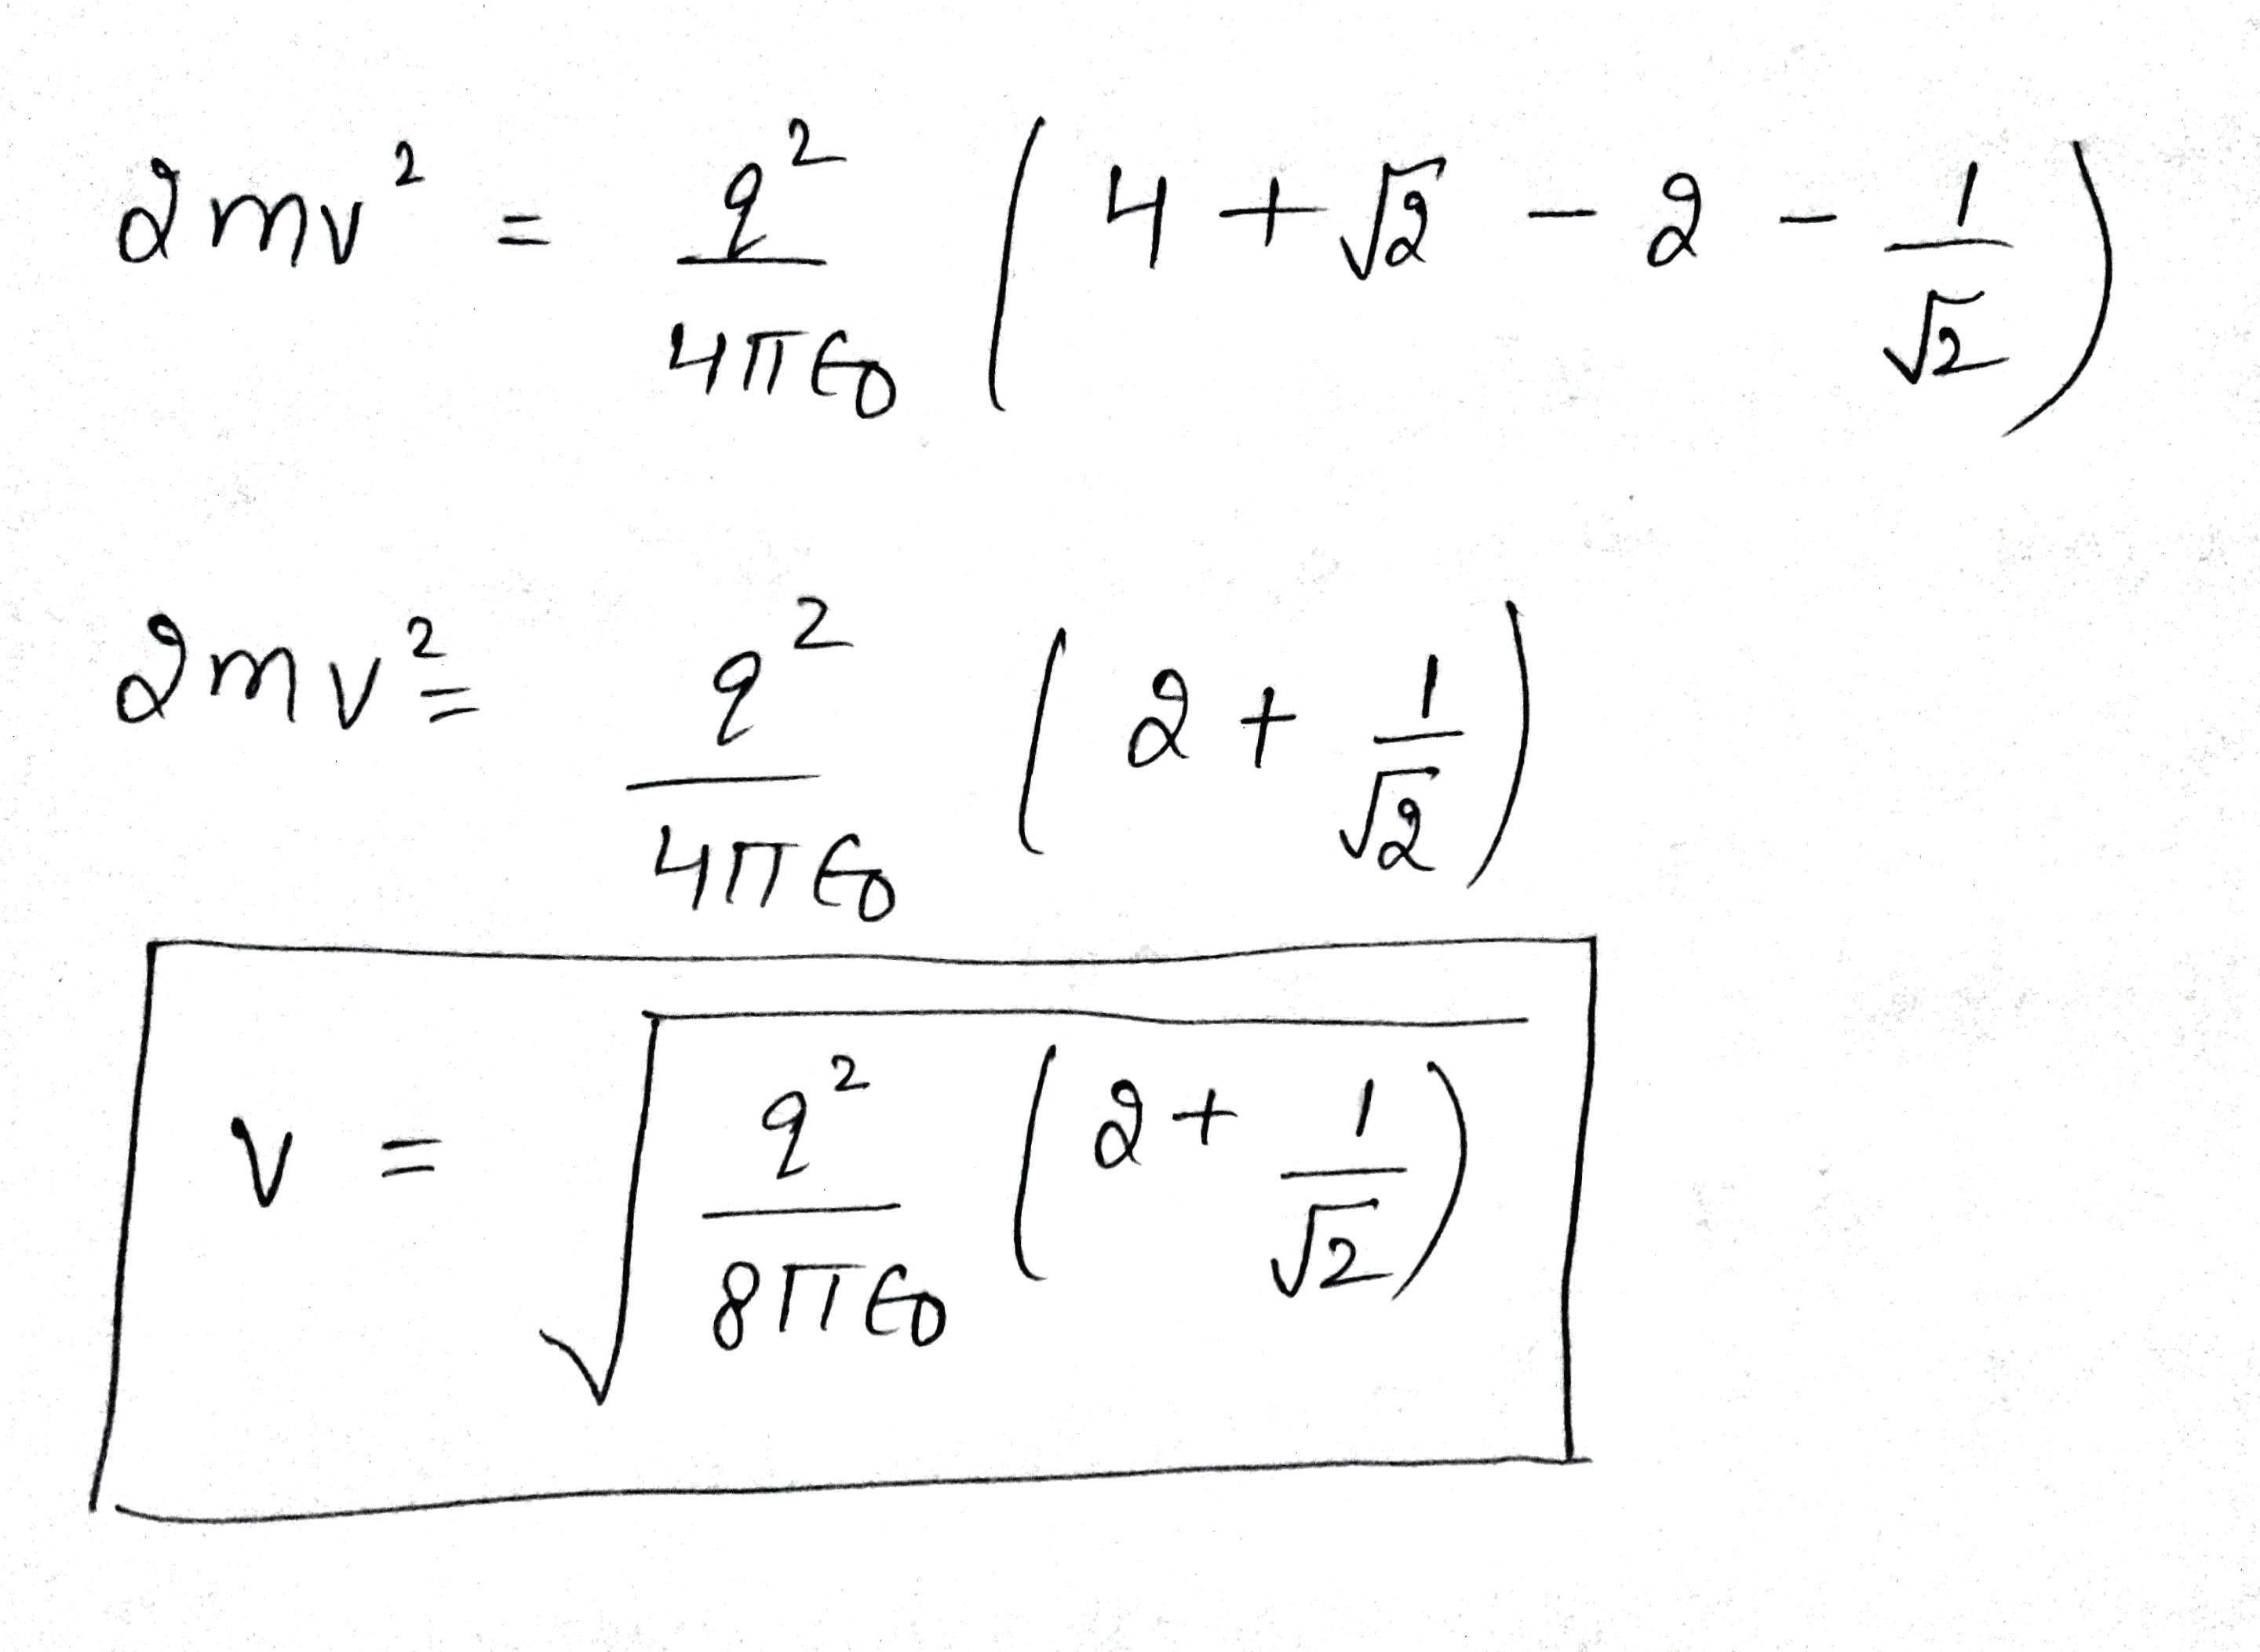 2mv² = q²/4πϵ₀ (4 + √2 − 2 − 1/√2)
2mv² = q²/4πϵ₀ (2 + 1/√2)
v = √(q²/8πϵ₀ (2 + 1/√2))